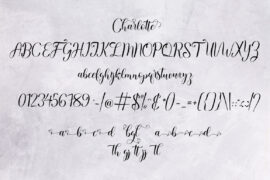 Charlotte
ABCDEFGHIJKLMNOPQRSTUVWXYZ
abcdefghijklmnopqrstuvwxyz
0123456789
a b c d bgf a b c d
Th gj tt jj tl